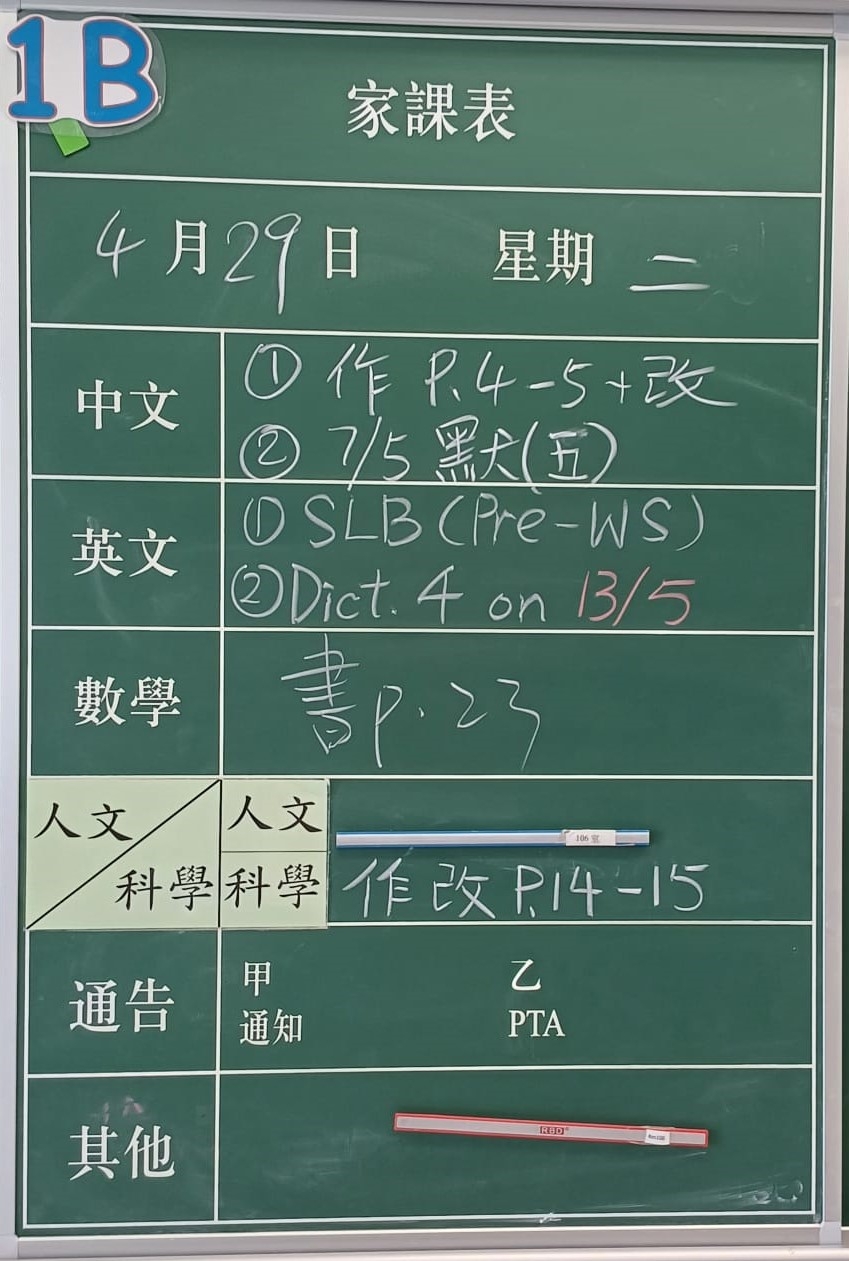 1B
家課表
4月29日 星期二
中文
① 作 P.4-5+改
② 7/5 默(五)
英文
① SLB (Pre-WS)
② Dict. 4 on 13/5
數學
書 p. 23
人文
科學
人文
106室
科學
作改 P.14-15
通告
甲 乙
通知 PTA
其他
RBD